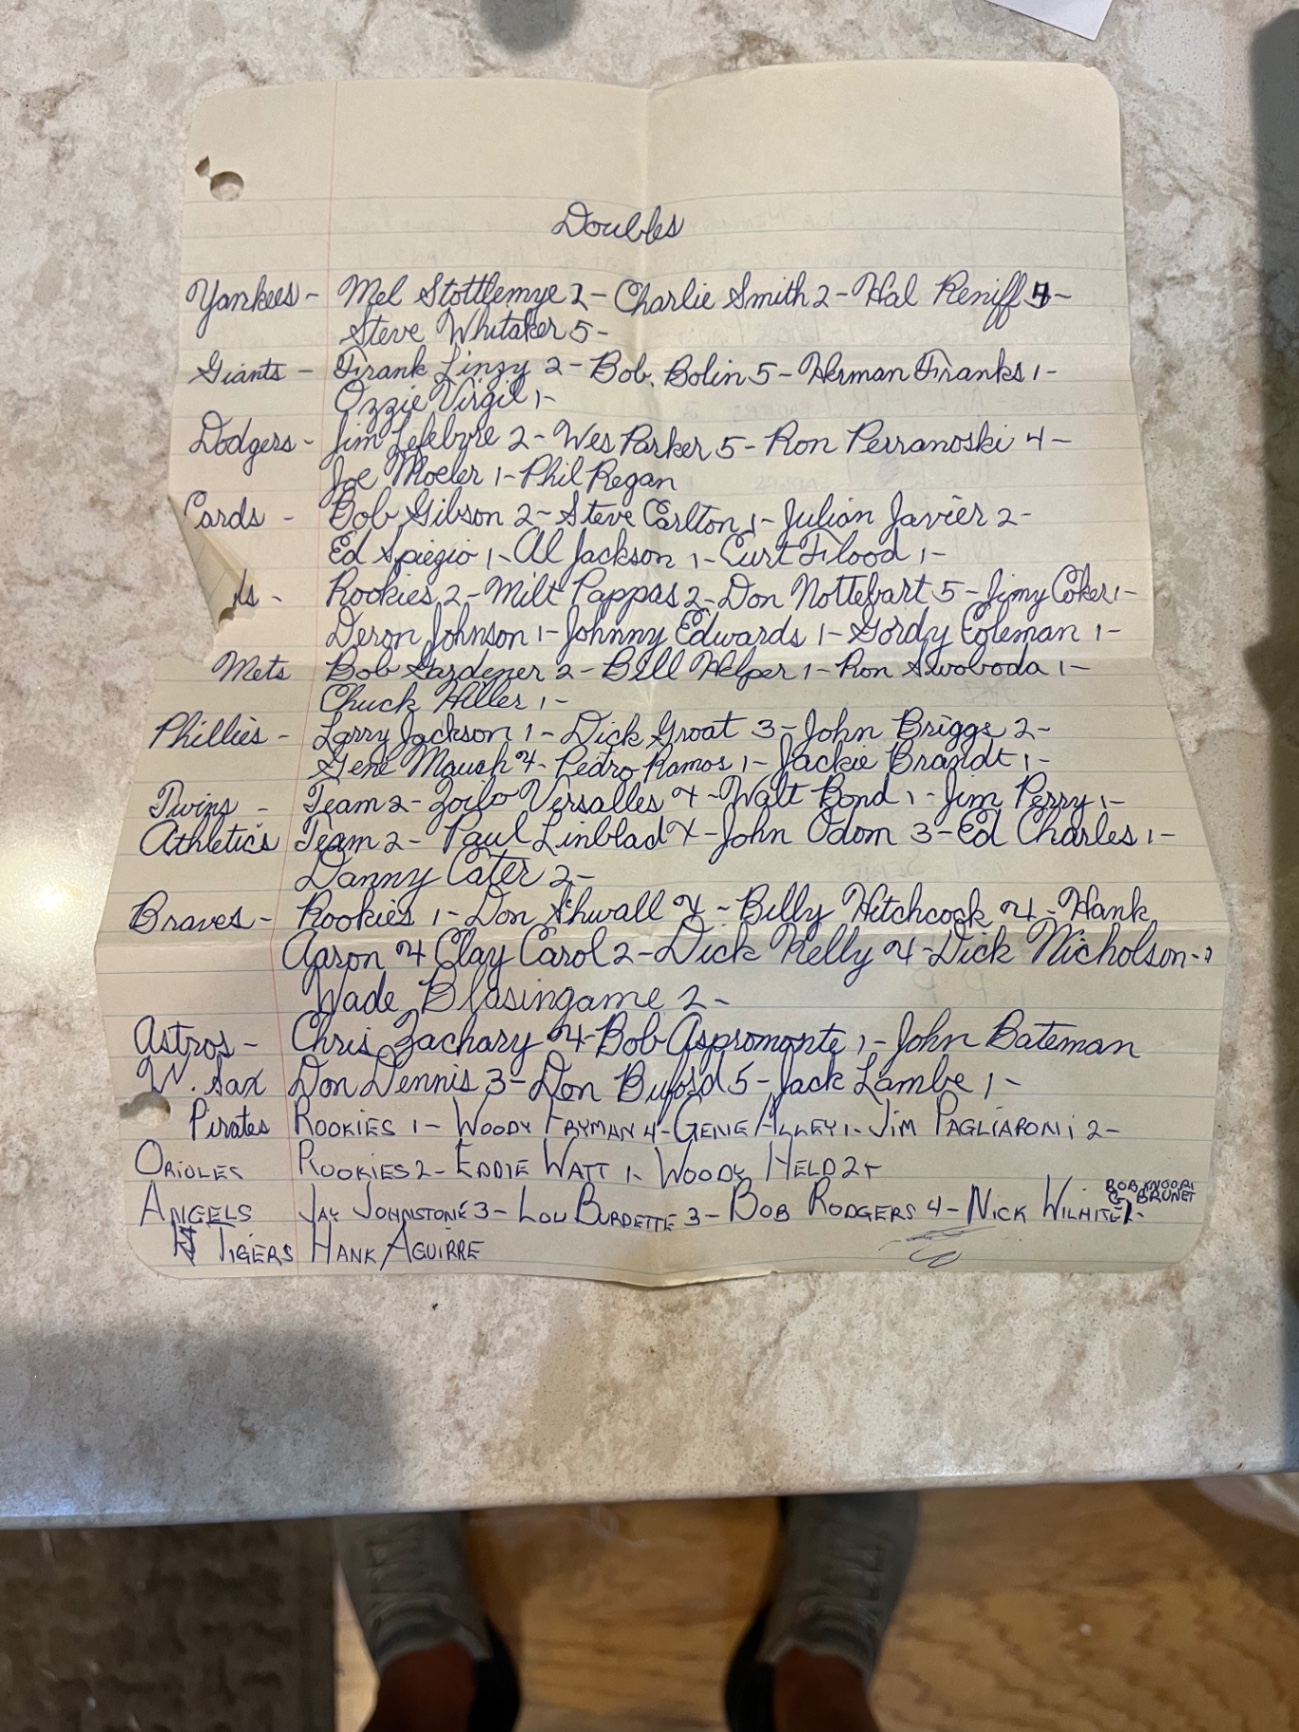 Doubles
Yankees - Mel Stottlemye 2 - Charlie Smith 2 - Hal Reniff -
Steve Whitaker 5 -
Giants - Frank Linzy 2 - Bob. Bolin 5 - Herman Franks 1 -
Ozzie Virgil 1 -
Dodgers - Jim Lefebvre 2 - Wes Parker 5 - Ron Perranoski 4 -
Joe Moeler 1 - Phil Regan
Cards - Bob Gibson 2 - Steve Carlton 1 - Julian Javier 2 -
Ed Spiezio 1 - Al Jackson 1 - Curt Flood 1 -
ds - Rookies 2 - Milt Pappas 2 - Don Nottebart 5 - Jimy Coker 1 -
Deron Johnson 1 - Johnny Edwards 1 - Gordy Coleman 1 -
Mets Bob Gardener 2 - Bill Helper 1 - Ron Swoboda 1 -
Chuck Hiller 1 -
Phillies - Larry Jackson 1 - Dick Groat 3 - John Briggs 2 -
Gene Mauch 4 - Pedro Ramos 1 - Jackie Brandt 1 -
Twins - Team 2 - Zoilo Versalles 4 - Walt Bond 1 - Jim Perry 1 -
Athletics Team 2 - Paul Linblad 4 - John Odom 3 - Ed Charles 1 -
Danny Cater 2 -
Braves - Rookies 1 - Don Shwall 4 - Billy Hitchcock 4 - Hank
Aaron 4 Clay Carol 2 - Dick Kelly 4 - Dick Nicholson -
Wade Blasingame 2 -
Astros - Chris Zachary 4 - Bob Aspromonte 1 - John Bateman
W. Sax Don Dennis 3 - Don Buford 5 - Jack Lambe 1 -
Pirates ROOKIES 1 - WOODY FRYMAN 4 - GENE ALLEY 1 - JIM PAGLIARONI 2 -
ORIOLES ROOKIES 2 - EDDIE WATT 1 - WOODY HELD 2 +
BOB KNOOP 1
G BRUNET
ANGELS JAY JOHNSTONE 3 - LOU BURDETTE 3 - BOB RODGERS 4 - NICK WILHITE -
TIGERS HANK AGUIRRE